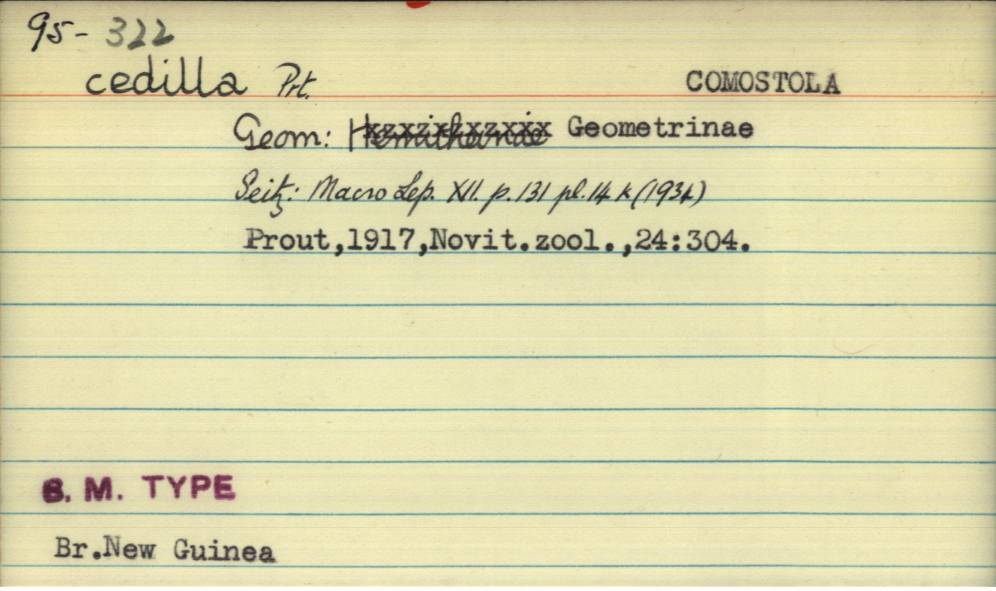 95-322
cedilla Prt. COMOSTOLA
Geom: Geometrinae
Seitz: Macro Lep. XII. p.131 pl.14 k (1934)
Prout,1917,Novit.zool.,24:304.
B. M. TYPE
Br.New Guinea